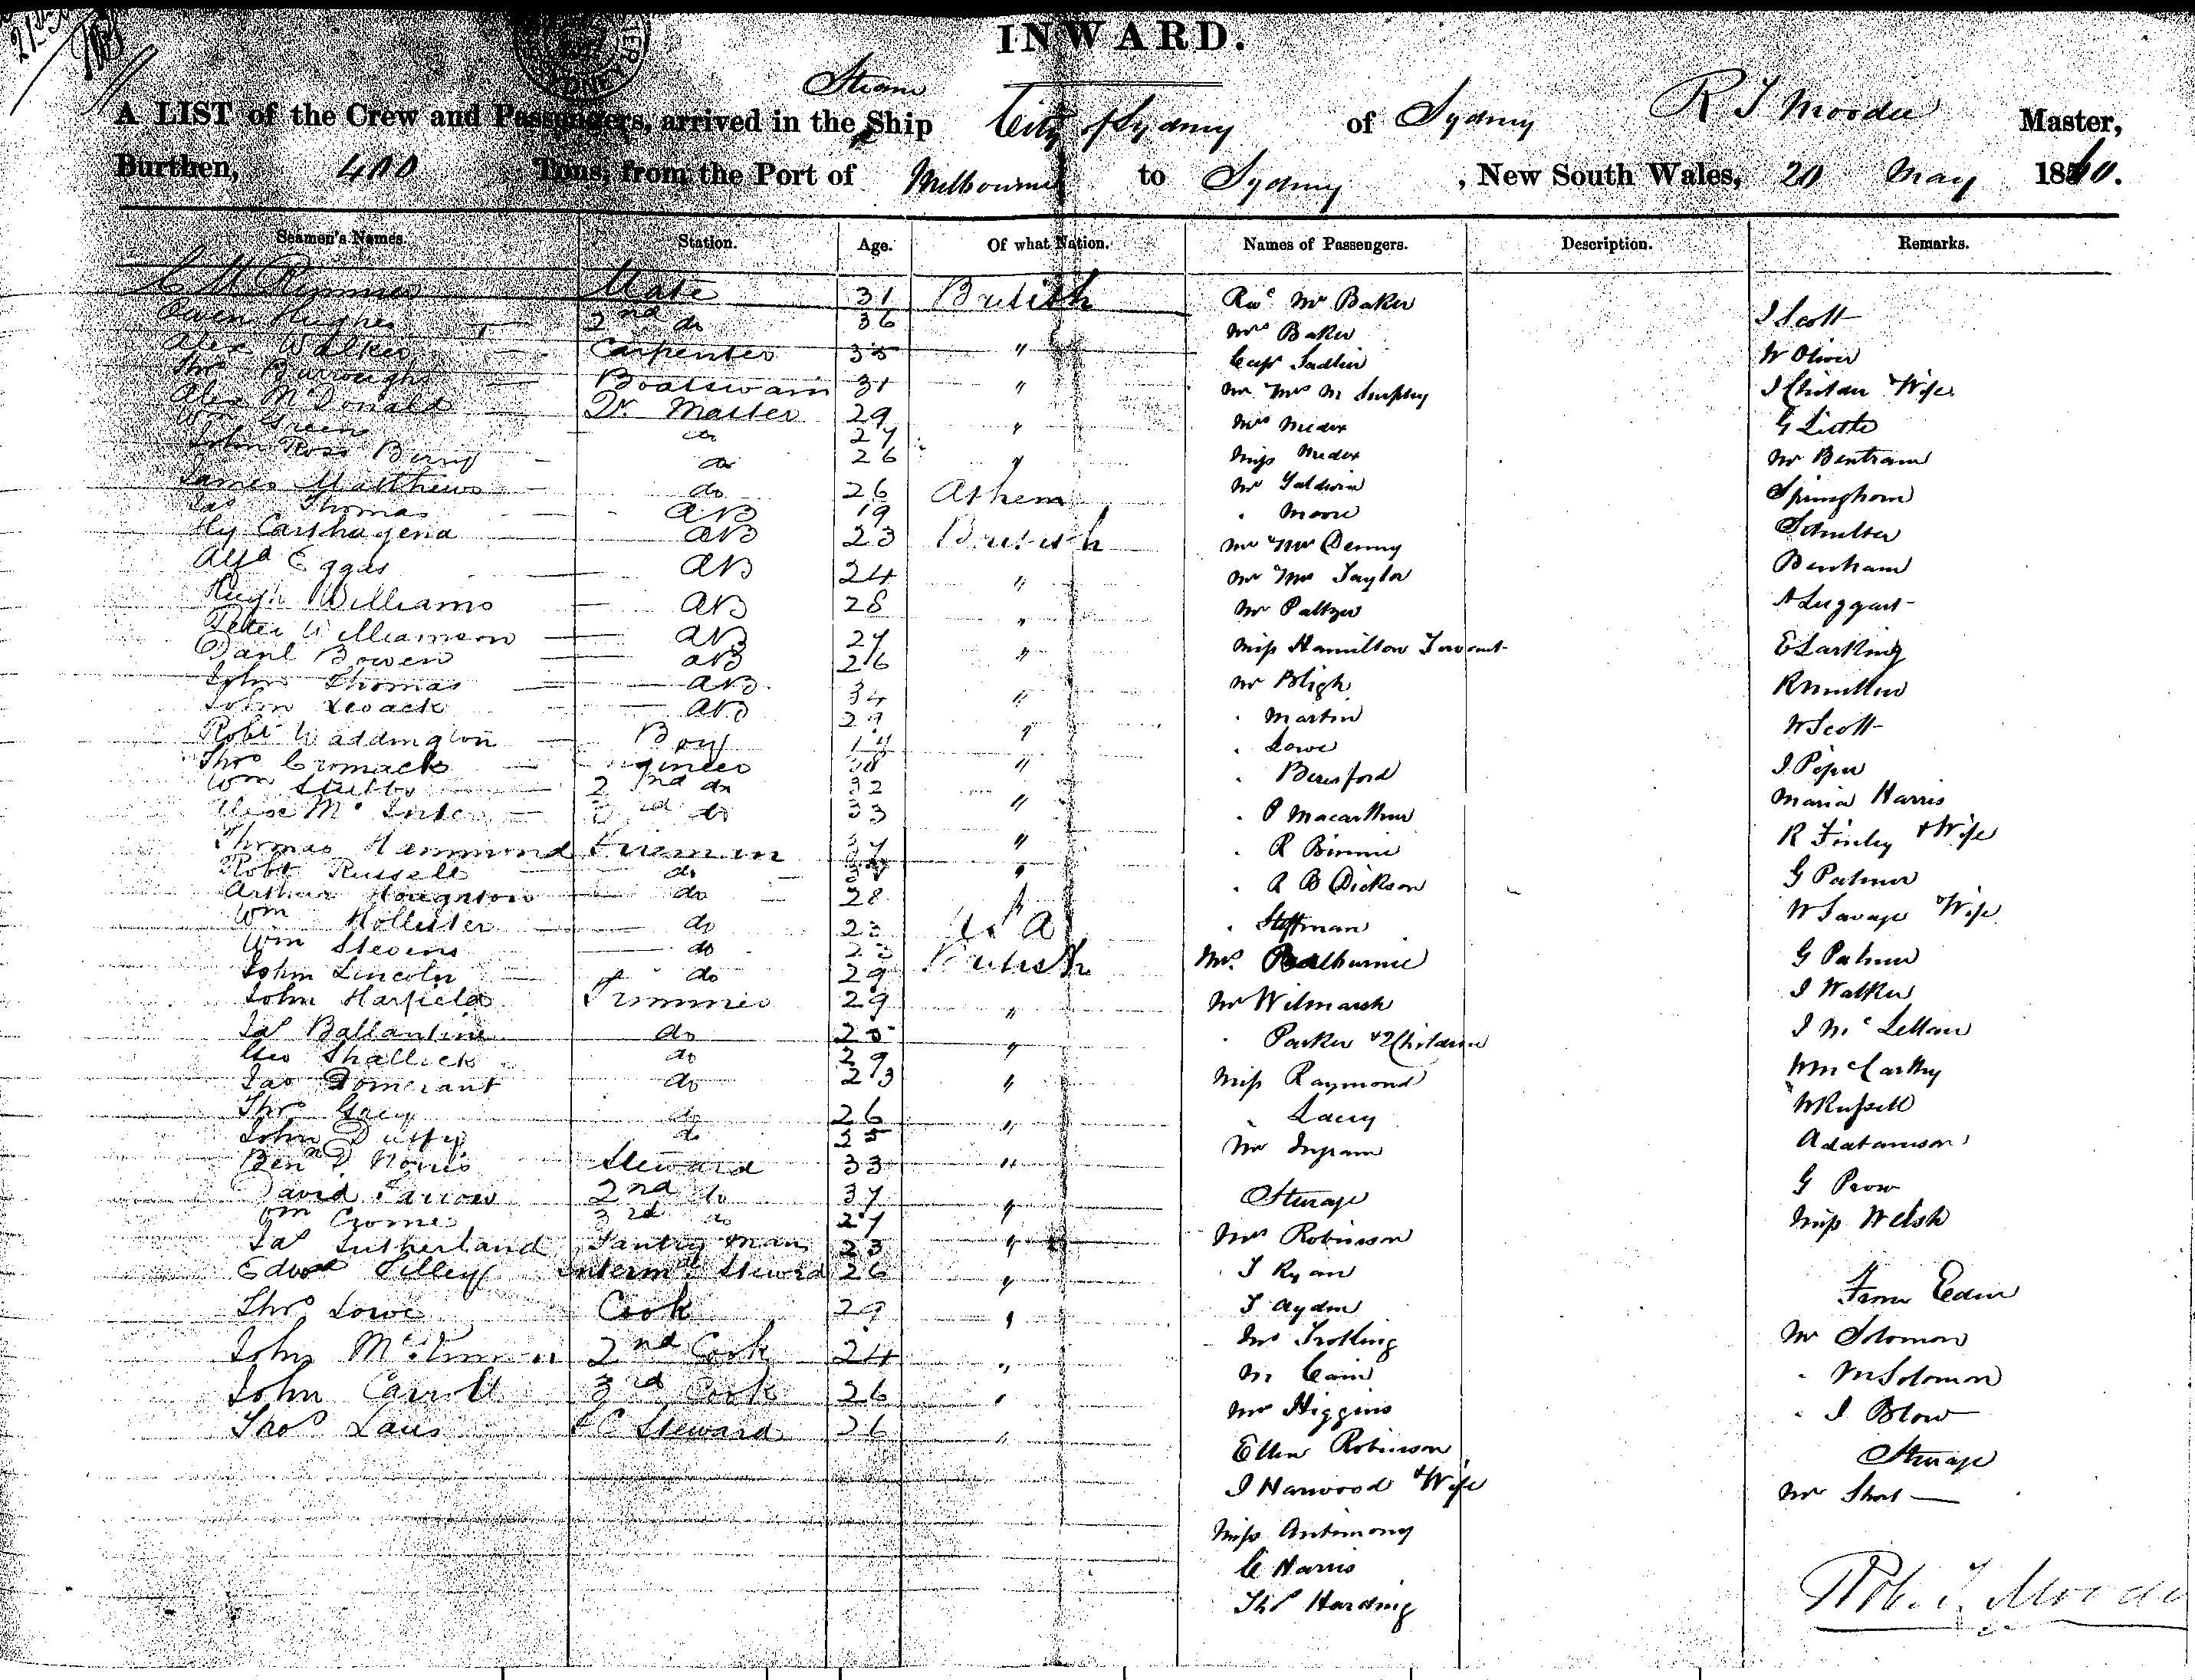 INWARD.
Steam
A LIST of the Crew and Passengers, arrived in the Ship City of Sydney of Sydney R T Moodie Master,
Burthen, 400 Tons, from the Port of Melbourne to Sydney , New South Wales, 20 May 1860.
Seamen's Names. Station. Age. Of what Nation. Names of Passengers. Description. Remarks.
Mate 31 British Revd Mr Baker
Owen Hughes 2nd do 36 Mrs Baker J Scott
Alex Walker Carpenter 35 " Capt Sadlier W Oliver
Thos Burroughs Boatswain 31 " Mr Mrs M Simpley J Childer & Wife
Alex McDonald Qr Master 29 " Mrs Medex G Little
Wm Green do 27 Miss Medex Mr Bentram
John Ross Berry do 26 " Mr Galdwin Springhorn
James Matthews do 26 Athens " Moore Schulter
Jas Thomas AB 19 Mr & Mrs Denny Benham
Hy Carthagena AB 23 British Mr & Mrs Taylor A Luggart
Alfd Eggers AB 24 " Mr Paltzer E Larking
Hugh Williams AB 28 " Miss Hamilton Servant
Peter Williamson AB 27 " Mr Bligh W Scott
Danl Bowen AB 26 " Martin J Piper
John Thomas AB 34 " " Lowe Maria Harris
John Levack AB 29 " " Beresford R Finley & Wife
Robt Waddington Boy 14 " " P Macarthur G Palmer
Thos Cromack Engineer 38 " " R Binnie W Savage & Wife
Wm Stubbs 2nd do 32 " " R B Dickson G Palmer
Alex Mc 3rd do 33 " " Steffman J Walker
Thomas Hammond Fireman 37 " Mrs J McLellan
Robt Russell do " Mr Wilmarsh W McCarthy
Arthur Houghton do 28 " " Parker & 2 Children W Russell
Wm Hollister do 23 U S A Miss Raymond A Adamson
Wm Stevens do 23 British " Lacey G Prow
John Lincoln do 29 Mr Ingram Miss Welsh
John Harfield Trimmer 29 " Steerage From Eden
Jas Ballantine do 25 " Mrs Robinson Mr Solomon
Geo Shallick do 29 J Ryan " M Solomon
Jas Pomerant do 23 " J Ayden " J Blow
Thos Gacy do 26 " Mrs Trotting Steerage
John Duffy do 25 M Cain Mr Short
Benn D Norris Steward 33 " Mr Higgins
David Farrow 2nd do 37 " Ellen Robinson
Wm Crome 3rd do 27 J Harwood & Wife
Jas Sutherland Pantry man 23 " Miss Antimony
Edwd Tilley Intermdt Steward 26 " C Harris
Thos Lowe Cook 29 " Thos Harding
John 2nd Cook 24 "
John Carroll 3rd Cook 26 "
Thos Laws F C Steward 26 "
Rob. T. Moodie